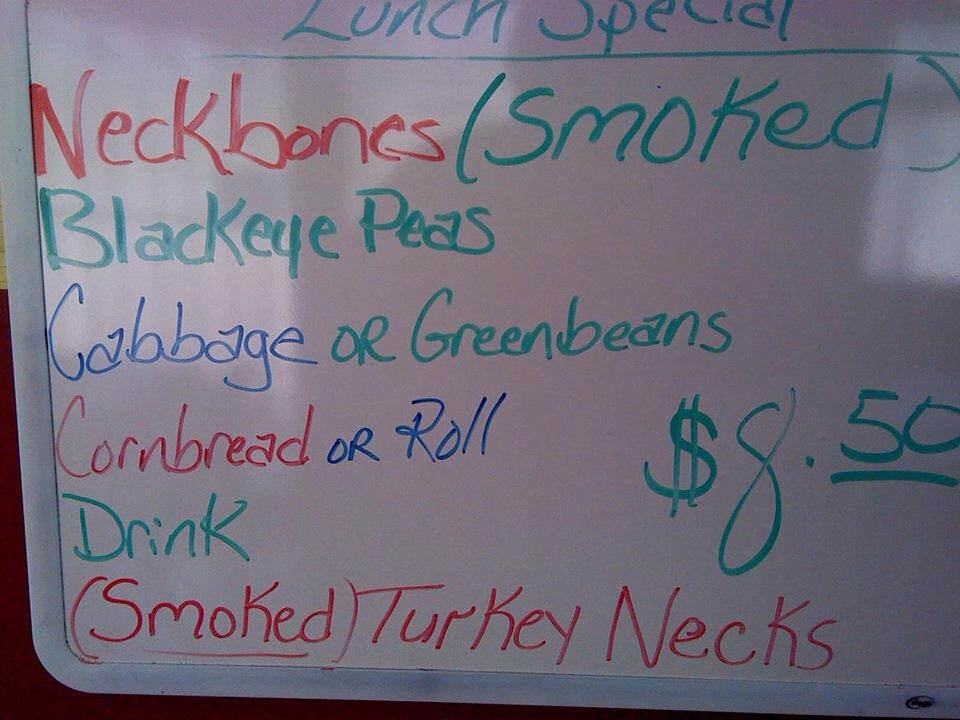 Lunch Special
Neckbones (Smoked)
Blackeye Peas
Cabbage OR Greenbeans
Cornbread OR Roll
$8.50
Drink
(Smoked) Turkey Necks